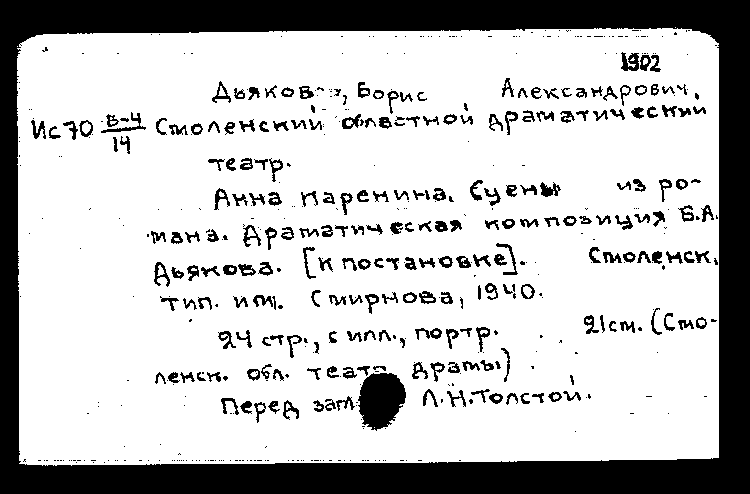 1902
Дьяков, Борис Александрович.
Ис70 В-4/14 Смоленский областной драматический
театр.
Анна Каренина. Сцены из ро-
мана. Драматическая композиция Б.А.
Дьякова. [К постановке]. Смоленск,
тип. им. Смирнова, 1940.
24 стр., с илл., портр. 21см. (Смо-
ленск. обл. театр драмы)
Перед загл. Л.Н.Толстой.